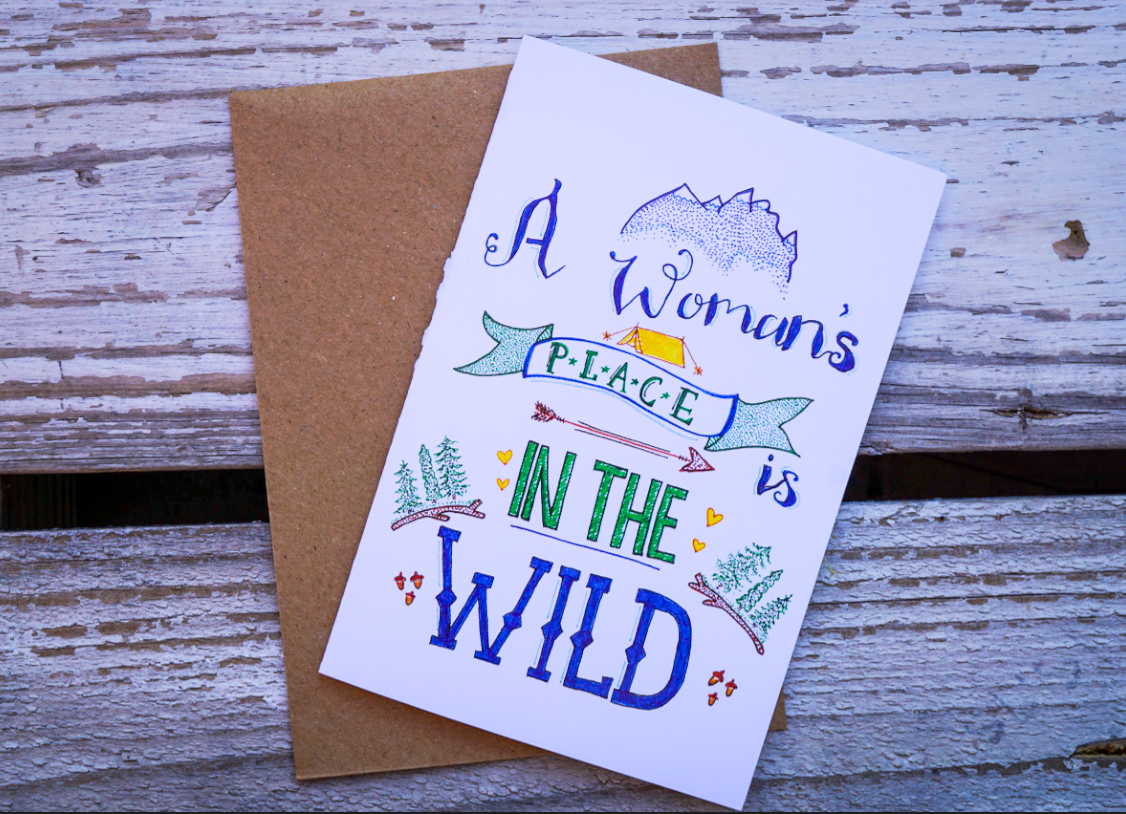 A Woman's
P·L·A·C·E
is
IN THE
WILD